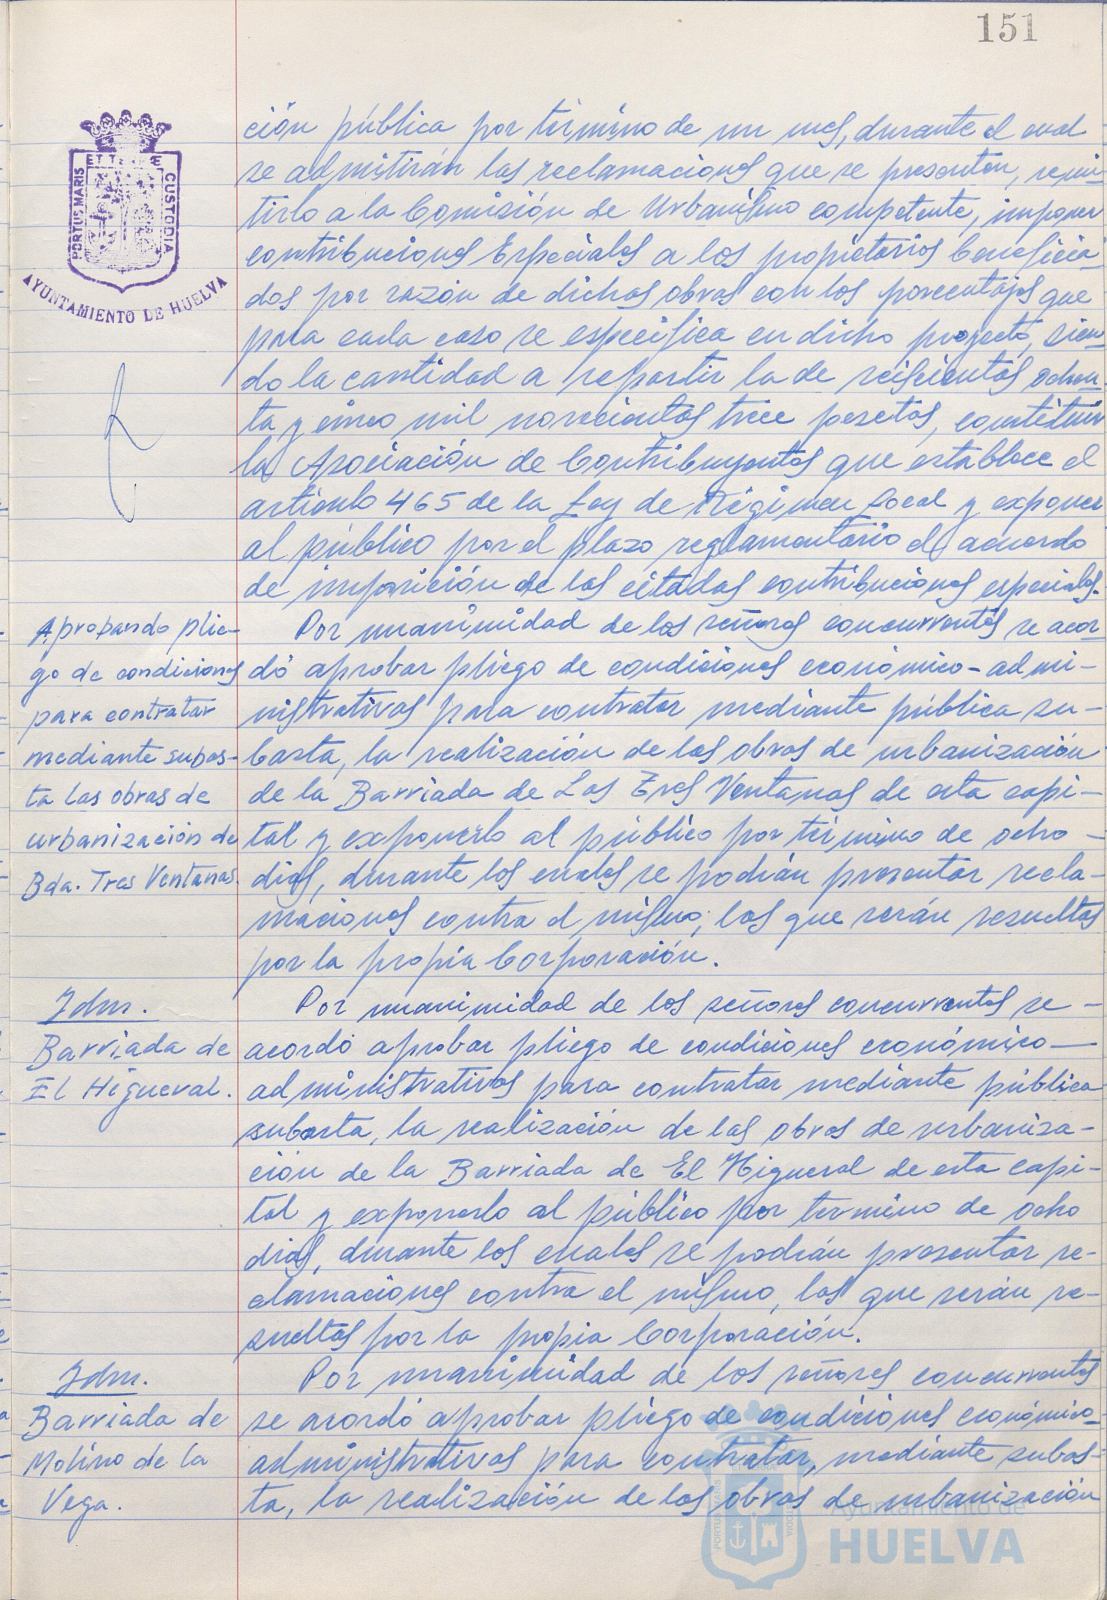 151
PORTUS MARIS ET TERRE CUSTODIA
AYUNTAMIENTO DE HUELVA
ción pública por término de un mes, durante el cual
se admitirán las reclamaciones que se presenten, remi-
tirlo a la Comisión de Urbanismo competente, imponer
contribuciones Especiales a los propietarios beneficia-
dos por razón de dichas obras con los porcentajes que
para cada caso se especifica en dicho proyecto, sien-
do la cantidad a repartir la de seiscientas ochen-
ta y cinco mil novecientas trece pesetas, constituir
la Asociación de Contribuyentes que establece el
artículo 465 de la Ley de Régimen Local y exponer
al público por el plazo reglamentario el acuerdo
de imposición de las citadas contribuciones especiales.
Aprobando plie-
go de condiciones
para contratar
mediante subas-
ta las obras de
urbanización de
Bda. Tres Ventanas.
Por unanimidad de los señores concurrentes se acor-
dó aprobar pliego de condiciones económico-admi-
nistrativas para contratar mediante pública su-
basta, la realización de las obras de urbanización
de la Barriada de Las Tres Ventanas de esta capi-
tal y exponerlo al público por término de ocho
días, durante los cuales se podrán presentar recla-
maciones contra el mismo, las que serán resueltas
por la propia Corporación.
Idm.
Barriada de
El Higueral.
Por unanimidad de los señores concurrentes se
acordó aprobar pliego de condiciones económico-
administrativas para contratar mediante pública
subasta, la realización de las obras de urbaniza-
ción de la Barriada de El Higueral de esta capi-
tal y exponerlo al público por termino de ocho
días, durante los cuales se podrán presentar re-
clamaciones contra el mismo, las que serán re-
sueltas por la propia Corporación.
Idm.
Barriada de
Molino de la
Vega.
Por unanimidad de los señores concurrentes
se acordó aprobar pliego de condiciones económico-
administrativas para contratar, mediante subas-
ta, la realización de las obras de urbanización
Ayuntamiento de
HUELVA